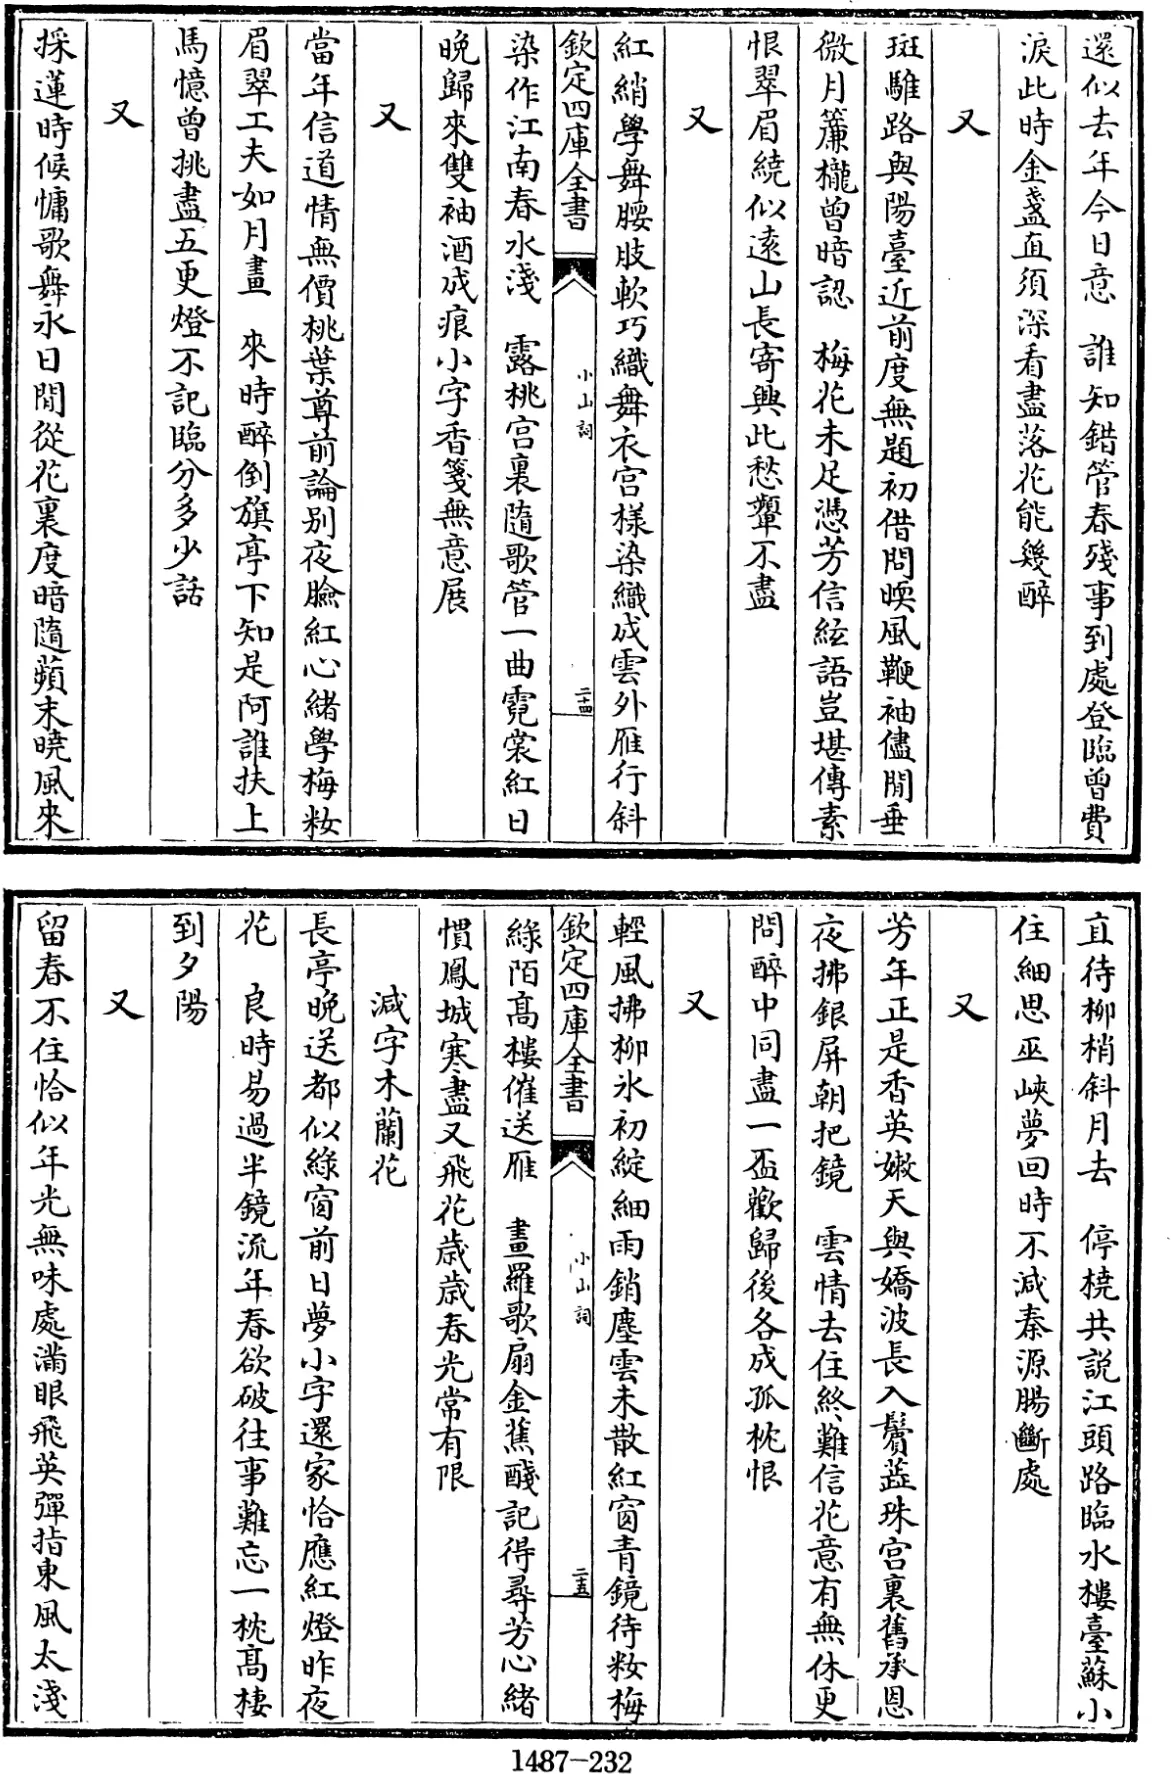 還似去年今日意　誰知錯管春殘事到處登臨曾費
淚此時金盞直須深看盡落花能幾醉
又
斑騅路與陽臺近前度無題初借問暖風鞭袖儘閒垂
微月簾櫳曾暗認　梅花未足憑芳信絃語豈堪傳素
恨翠眉繞似遠山長寄興此愁顰不盡
又
紅綃學舞腰肢軟巧織舞衣宮樣染織成雲外雁行斜
欽定四庫全書
小山詞
二十四
染作江南春水淺　露桃宮裏隨歌管一曲霓裳紅日
晚歸來雙袖酒成痕小字香箋無意展
又
當年信道情無價桃葉尊前論別夜臉紅心緒學梅粧
眉翠工夫如月畫　來時醉倒旗亭下知是阿誰扶上
馬憶曾挑盡五更燈不記臨分多少話
又
採蓮時候慵歌舞永日閒從花裏度暗隨蘋末曉風來
直待柳梢斜月去　停橈共說江頭路臨水樓臺蘇小
住細思巫峽夢回時不減秦源腸斷處
又
芳年正是香英嫩天與嬌波長入鬢蕋珠宮裏舊承恩
夜拂銀屏朝把鏡　雲情去住終難信花意有無休更
問醉中同盡一盃歡歸後各成孤枕恨
又
輕風拂柳氷初綻細雨銷塵雲未散紅窗青鏡待粧梅
欽定四庫全書
小山詞
二十五
綠陌高樓催送雁　畫羅歌扇金蕉醆記得尋芳心緒
慣鳳城寒盡又飛花歲歲春光常有限
減字木蘭花
長亭晚送都似綠窗前日夢小字還家恰應紅燈昨夜
花　良時易過半鏡流年春欲破往事難忘一枕高樓
到夕陽
又
留春不住恰似年光無味處滿眼飛英彈指東風太淺
1487-232